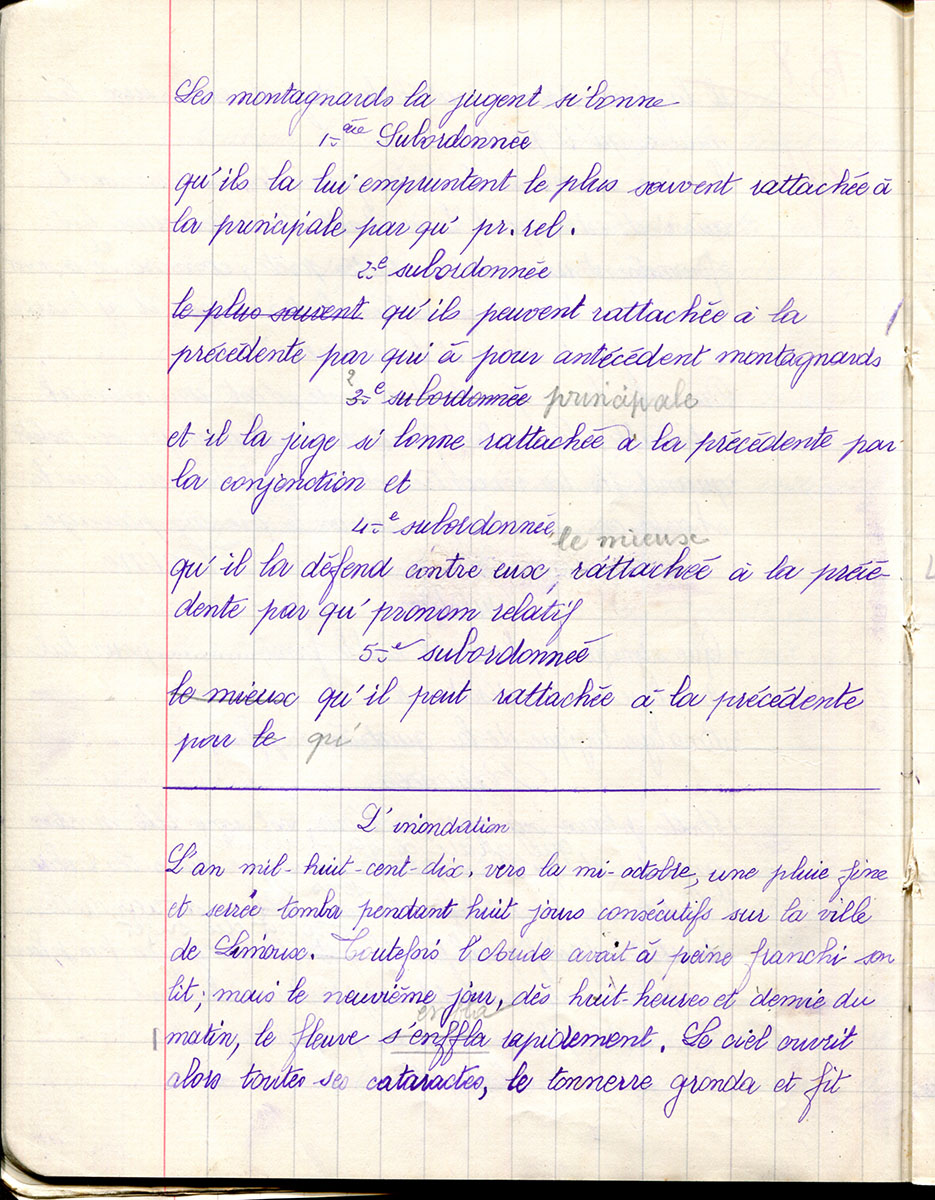 Les montagnards la jugent si bonne
1-ère Subordonnée
qu'ils la lui empruntent le plus souvent rattachée à
la principale par qu' pr. rel.
2-e subordonnée
le plus souvent qu'ils peuvent rattachée à la
précédente par qui à pour antécédent montagnards
2
3-e subordonnée principale
et il la juge si bonne rattachée à la précédente par
la conjonction et
4-e subordonnée
le mieux
qu'il la défend contre eux, rattachée à la précé-
dente par qu' pronom relatif
5-e subordonnée
le mieux qu'il peut rattachée à la précédente
par le qu'
L'inondation
L'an mil-huit-cent-dix, vers la mi-octobre, une pluie fine
et serrée tomba pendant huit jours consécutifs sur la ville
de Limoux. Toutefois l'Aude avait à peine franchi son
lit; mais le neuvième jour, dès huit-heures et demie du
matin, le fleuve s'enffla rapidement. Le ciel ouvrit
alors toutes ses cataractes, le tonnerre gronda et fit